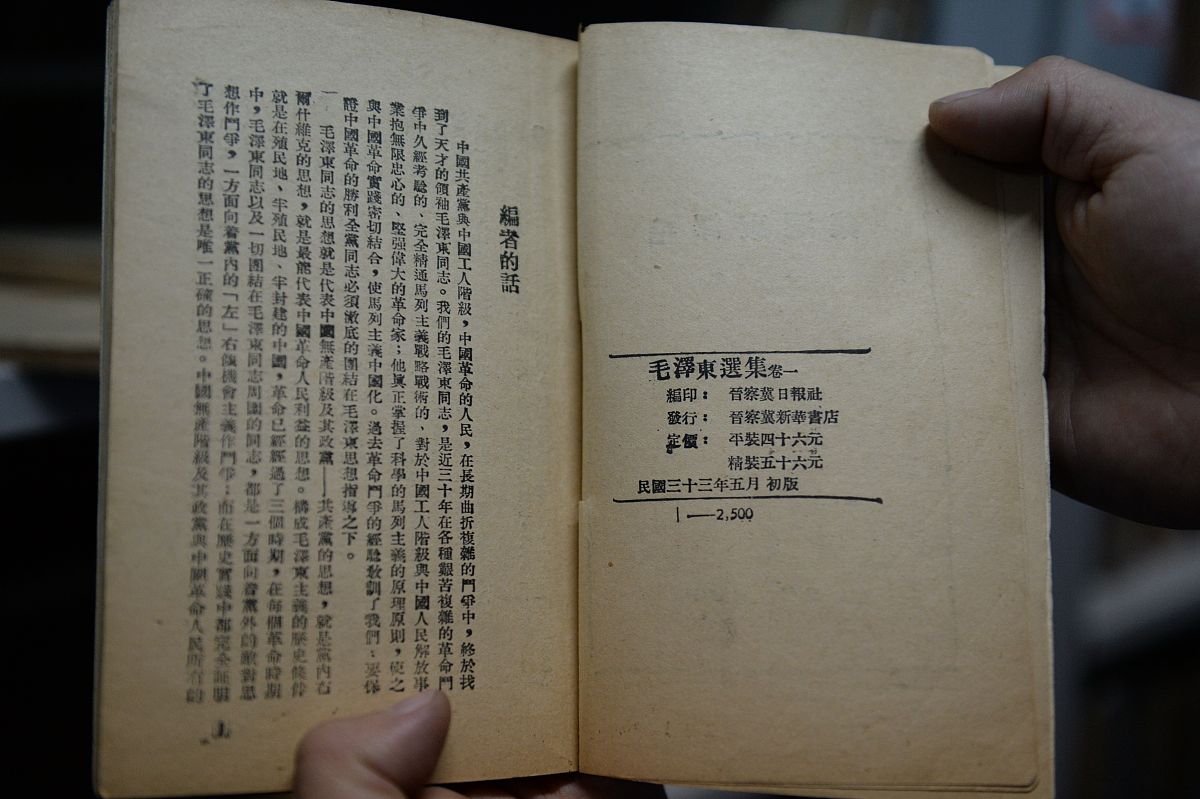 毛澤東選集卷一
編印：晉察冀日報社
發行：晉察冀新華書店
定價：平裝四十六元
精裝五十六元
民國三十三年五月初版
1——2,500
編者的話
中國共產黨與中國工人階級，中國革命的人民，在長期曲折複雜的鬥爭中，終於找
到了天才的領袖毛澤東同志。我們的毛澤東同志，是近三十年在各種艱苦複雜的革命鬥
爭中久經考驗的、完全精通馬列主義戰略戰術的、對於中國工人階級與中國人民解放事
業抱無限忠心的、堅强偉大的革命家；他眞正掌握了科學的馬列主義的原理原則，使之
與中國革命實踐密切結合，使馬列主義中國化。過去革命鬥爭的經驗敎訓了我們：要保
證中國革命的勝利全黨同志必須澈底的團結在毛澤東思想指導之下。
一 毛澤東同志的思想就是代表中國無產階級及其政黨——共產黨的思想，就是黨內布
爾什維克的思想，就是最能代表中國革命人民利益的思想。構成毛澤東主義的歷史條件
就是在殖民地、半殖民地、半封建的中國，革命已經經過了三個時期，在每個革命時期
中，毛澤東同志以及一切團結在毛澤東同志周圍的同志，都是一方面向着黨外的敵對思
想作鬥爭，一方面向着黨內的「左」右傾機會主義作鬥爭；而在歷史實踐中都完全証明
了毛澤東同志的思想是唯一正確的思想。中國無產階級及其政黨與中國革命人民所有的